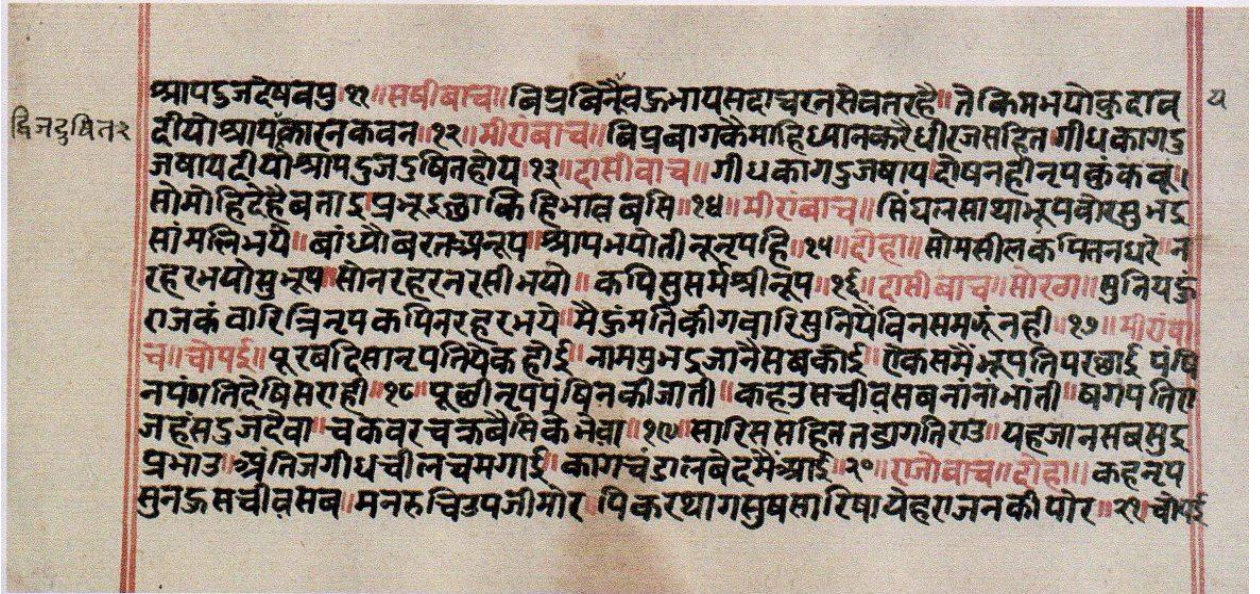 श्रापदुजदेषबपु।११॥सषीबाच॥बिप्रबिनैवऊभायसदाचरनसेवतरहै॥तेकिमभयोकुदाव य
द्विजदुषित२
दीयोश्रापकारनकवन॥१२॥मीरांबाच॥बिप्रबागकैमाहिध्यानकरैधीरजसहित।गीधकागदु
जषायदीयोश्रापदुजदुषितहोय।१३॥दासीवाच॥गीधकागदुजषाय।दोषनहीनृपकुंकबू।
सोमोहिदेहैबताइ।प्रभूइछाकिहिभावबसि॥१४॥मीरांबाच॥सिंघलसाथाभूपवोरसुभद्र
सांमलिभये॥बांध्यौबरतअनूप।श्रापभयोतीनूनृपहि॥१५॥दोहा॥सोमसीलकपितनधरे॥न
रहरभयोसुभूप॥सोनरहरनरसीभयो॥कपिसुसर्मश्रीनूप॥१६॥दासीबाच॥सोरठा॥सुनियऊ
राजकंवारित्रिनृपकपिनरहरभये॥मैऊंमतिकीगवारिसुनियैविनसमझूंनही॥१७॥मीरांबा
च॥चौपई॥पूरबदिसानृपतियेकहोई॥नामसुभद्रजानैसबकोई॥ऐकसमैंभूपतिपरछाई।पंषि
नपंगतिदेषिसराही॥१८॥पूछीनृपपंषिनकीजाती॥कहउसचीवसबनांनांभांती॥षगपतिरा
जहंसदुजदेवा॥चकवरचक्रबैसिकभेवा॥१९॥सारिससहिततडागतिराउ॥यहजानसबसुद्र
प्रभाउ॥अंतिजगीधचीलचमगाई॥कागचंडालबेदमैंआई॥२०॥राजोबाच॥दोहा॥कहनृप
सुनऊसचीवसब॥मनरुचिउपजीमोर।पिकरथागसुषसारिषायेहराजनकीपोर॥२१॥चौपई